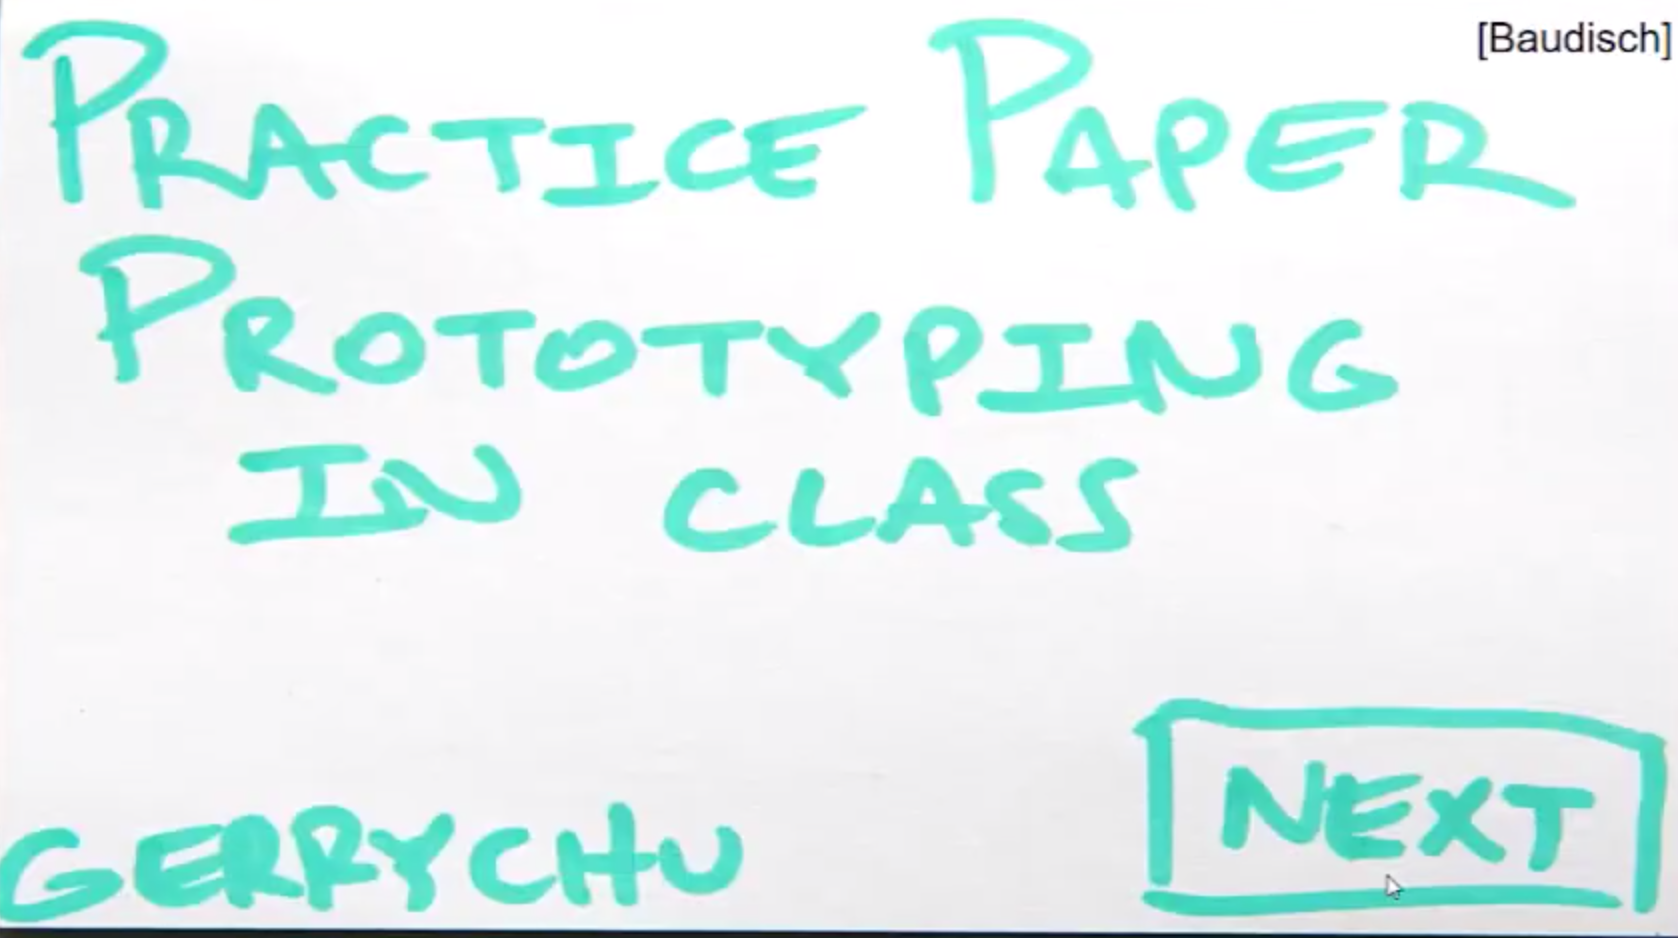 [Baudisch]
PRACTICE PAPER
PROTOTYPING
IN CLASS
GERRY CHU
NEXT